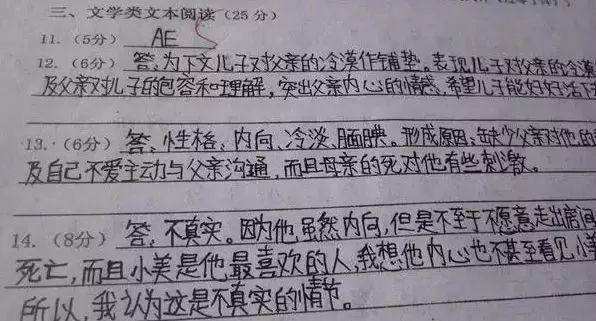 三、文学类文本阅读（25分）
11.（5分） AE
12.（6分） 答：为下文儿子对父亲的冷漠作铺垫，表现儿子对父亲的冷漠
及父亲对儿子的包容和理解，突出父亲内心的情感，希望儿子能好好活下
13.（6分） 答：性格、内向、冷淡、腼腆。形成原因：缺少父亲对他的
及自己不爱主动与父亲沟通，而且母亲的死对他有些刺激。
14.（8分） 答，不真实。因为他虽然内向，但是不至于不愿意走出房间
死亡，而且小美是他最喜欢的人，我想他内心也不甚至看见小美
所以，我认为这是不真实的情节。